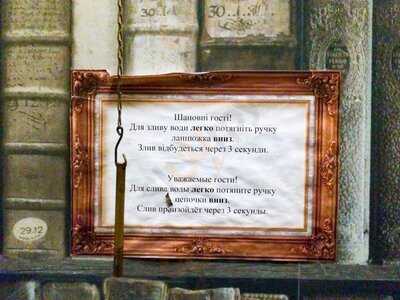 30..
30..1..
Шановні гості!
Для зливу води легко потягніть ручку
ланцюжка вниз.
Злив відбудеться через 3 секунди.
Уважаемые гости!
Для слива воды легко потяните ручку
цепочки вниз.
Слив произойдёт через 3 секунды.
29.12